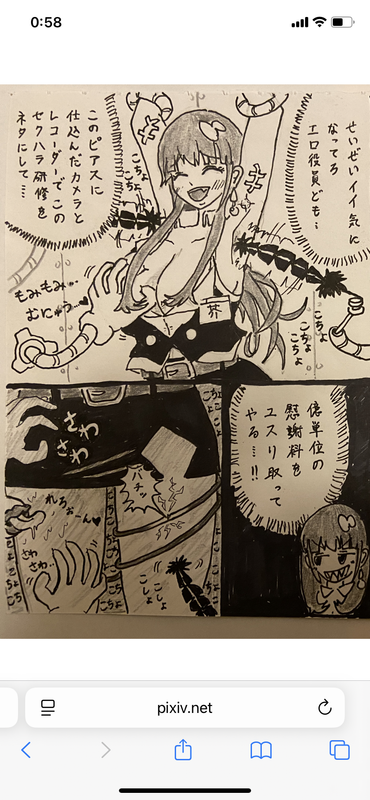 0:58
せいぜいイイ気に
なってろ
エロ役員ども…
このピアスに
仕込んだカメラと
レコーダーでこの
セクハラ研修を
ネタにして…
こちょ
こちょ
もみもみ…
むにゅっ…♥
芥
こちょ
こちょ
こちょ
億単位の
慰謝料を
ユスり取って
やる…!!
さわ
さわ
バチッ
れろぉーん♥
さわ
さわ…
こしょ
こしょ
こちょ
こちょ
こちょ
pixiv.net